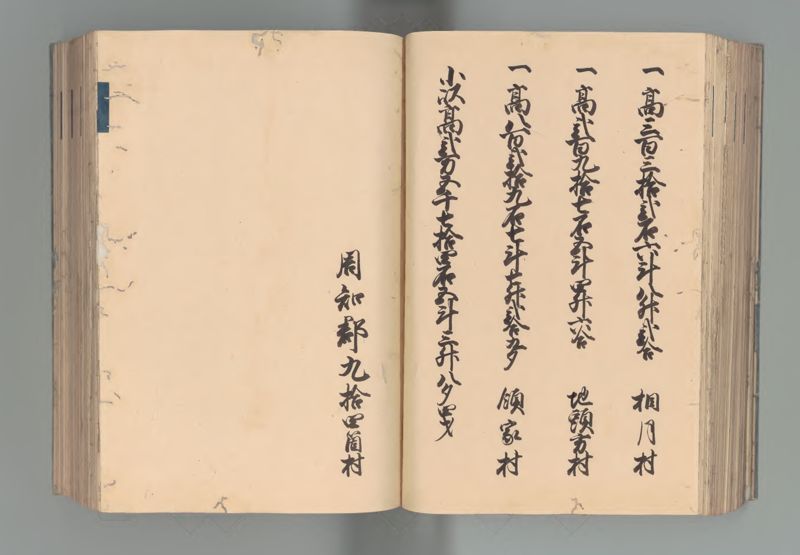 一高三百三拾弐石六斗八升弐合 相月村
一高弐百九拾七石五斗四升六合 地頭方村
一高八百弐拾九石七斗七升弐合九夕 領家村
小以高弐万五千七拾四石五斗三升八夕四才
周知郡九拾四箇村